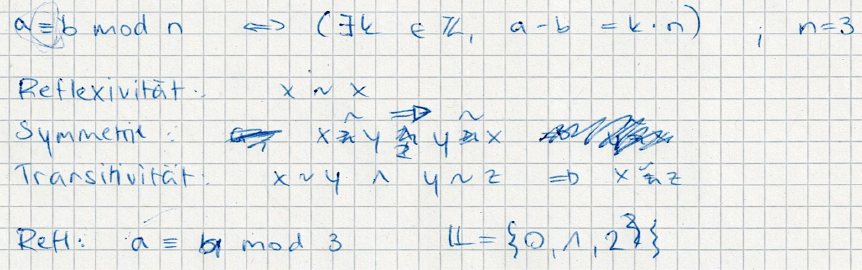 a ≡ b mod n ⇔ (∃k ∈ ℤ, a - b = k · n) ; n=3
Reflexivität: x ~ x
Symmetrie: x ~ y ⇒ y ~ x
Transitivität: x ~ y ∧ y ~ z ⇒ x ~ z
Refl: a ≡ a mod 3 𝕃 = {0, 1, 2}